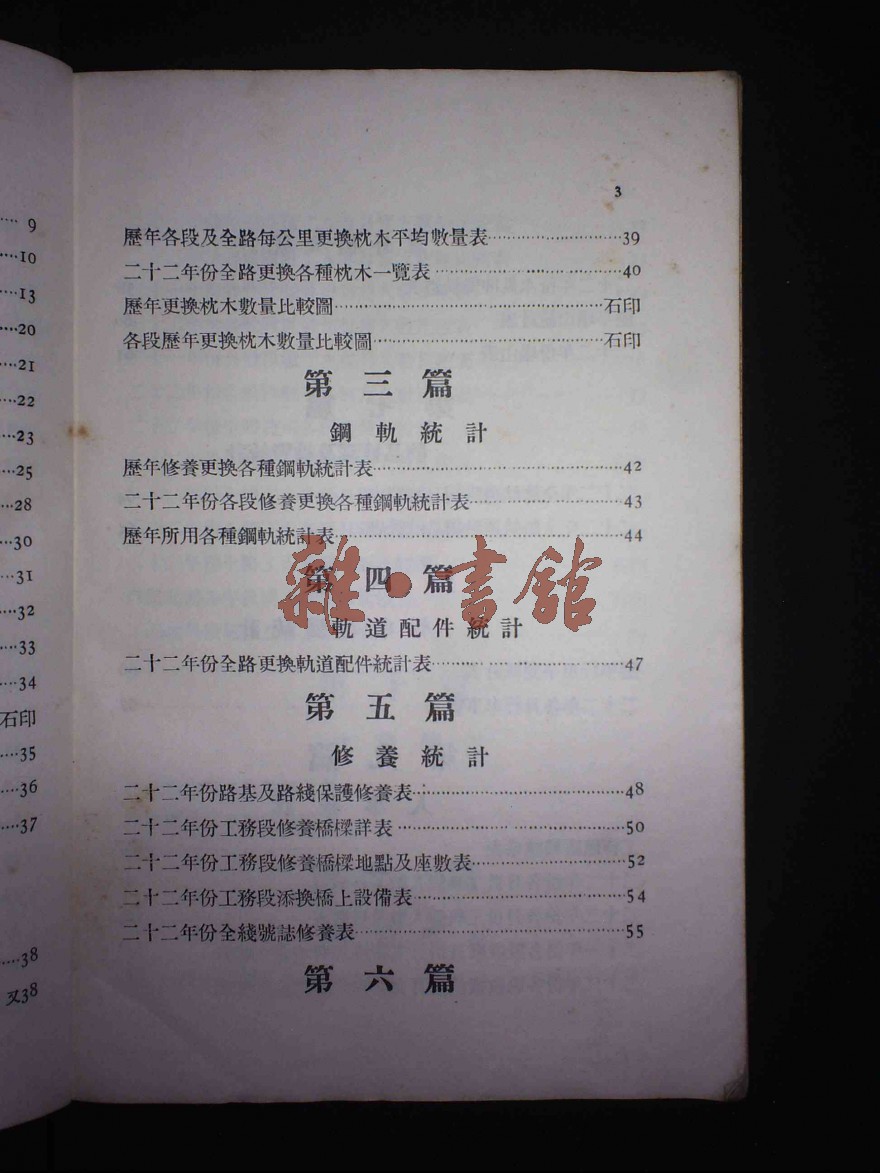 9
10
13
20
21
22
23
25
28
30
31
32
33
34
石印
35
36
37
38
又38
3
歷年各段及全路每公里更換枕木平均數量表……………………39
二十二年份全路更換各種枕木一覽表……………………40
歷年更換枕木數量比較圖……………………石印
各段歷年更換枕木數量比較圖……………………石印
第三篇
鋼軌統計
歷年修養更換各種鋼軌統計表……………………42
二十二年份各段修養更換各種鋼軌統計表……………………43
歷年所用各種鋼軌統計表……………………44
第四篇
雜·書館
軌道配件統計
二十二年份全路更換軌道配件統計表……………………47
第五篇
修養統計
二十二年份路基及路綫保護修養表……………………48
二十二年份工務段修養橋樑詳表……………………50
二十二年份工務段修養橋樑地點及座數表……………………52
二十二年份工務段添換橋上設備表……………………54
二十二年份全綫號誌修養表……………………55
第六篇